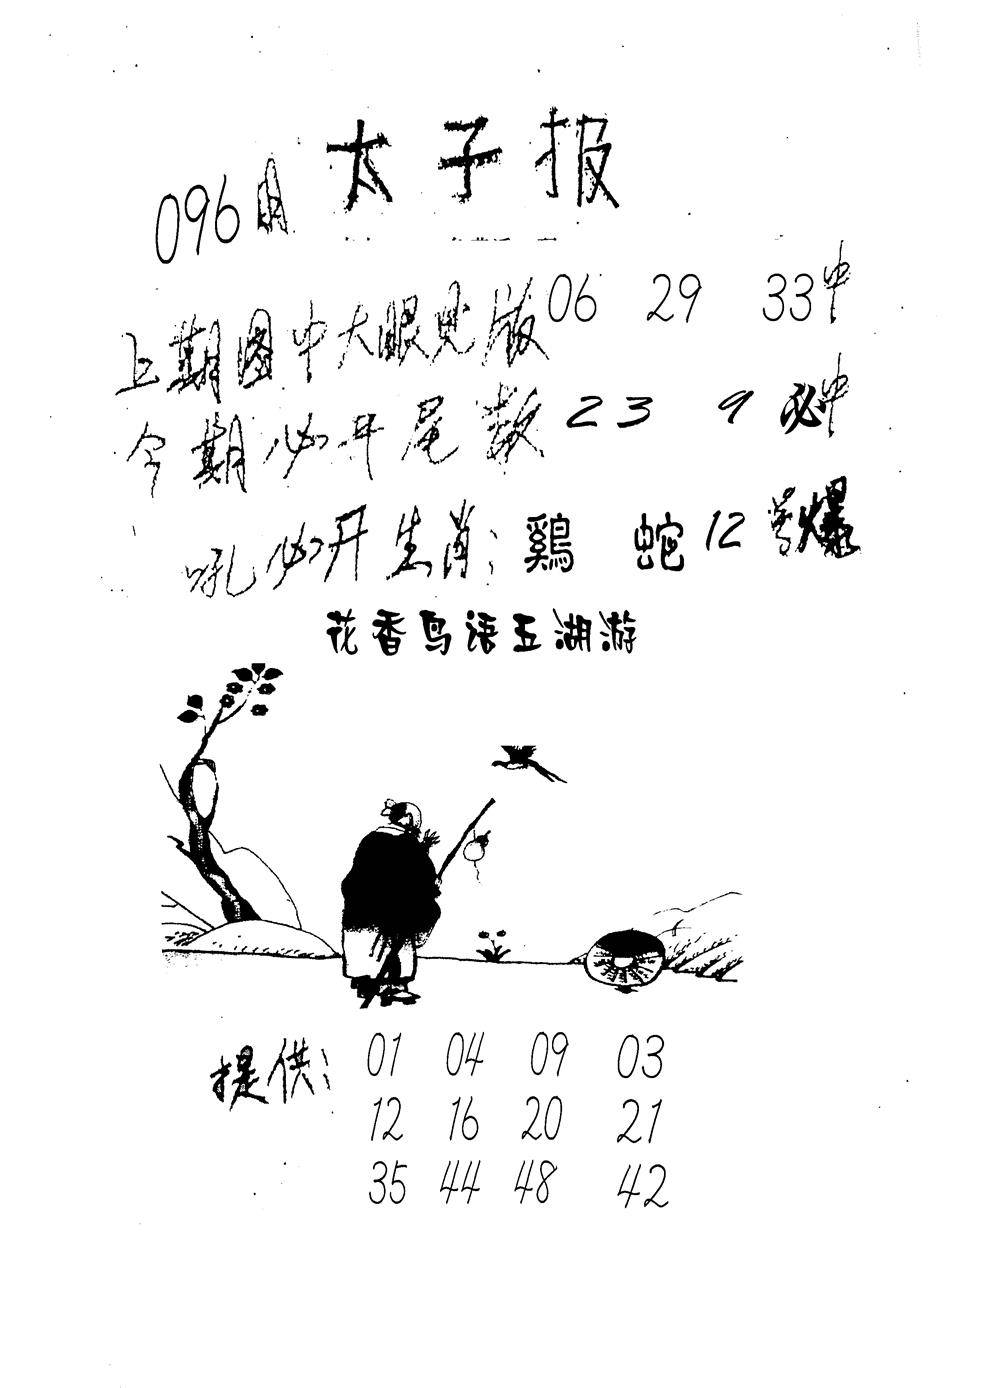 太子报
096期
上期图中大眼见版06 29 33中
今期必开尾数 2 3 9 必中
吼必开生肖: 鷄 蛇 12号爆
花香鸟语五湖游
提供: 01 04 09 03
12 16 20 21
35 44 48 42